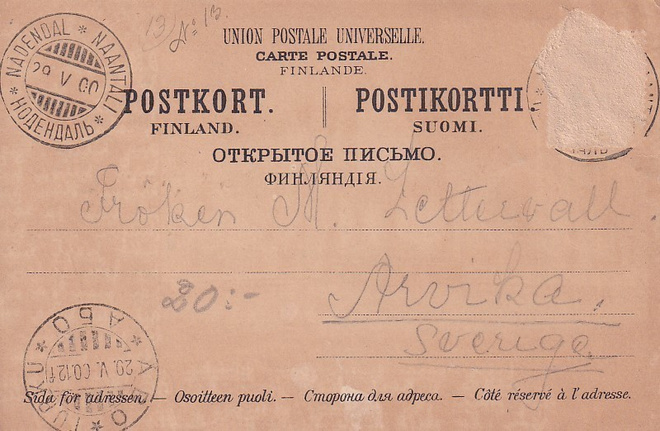 13 No 13.
UNION POSTALE UNIVERSELLE.
CARTE POSTALE.
FINLANDE.
NÅDENDAL * NAANTALI * НОДЕНДАЛЬ *
29 V 00
POSTKORT. POSTIKORTTI.
FINLAND. SUOMI.
ОТКРЫТОЕ ПИСЬМО.
ФИНЛЯНДІЯ.
Fröken M. Zettervall.
Arvika.
Sverige
20:-
ÅBO * TURKU * АБО *
29. V. 00. 12
Sida för adressen. — Osoitteen puoli. — Сторона для адреса. — Côté réservé à l'adresse.